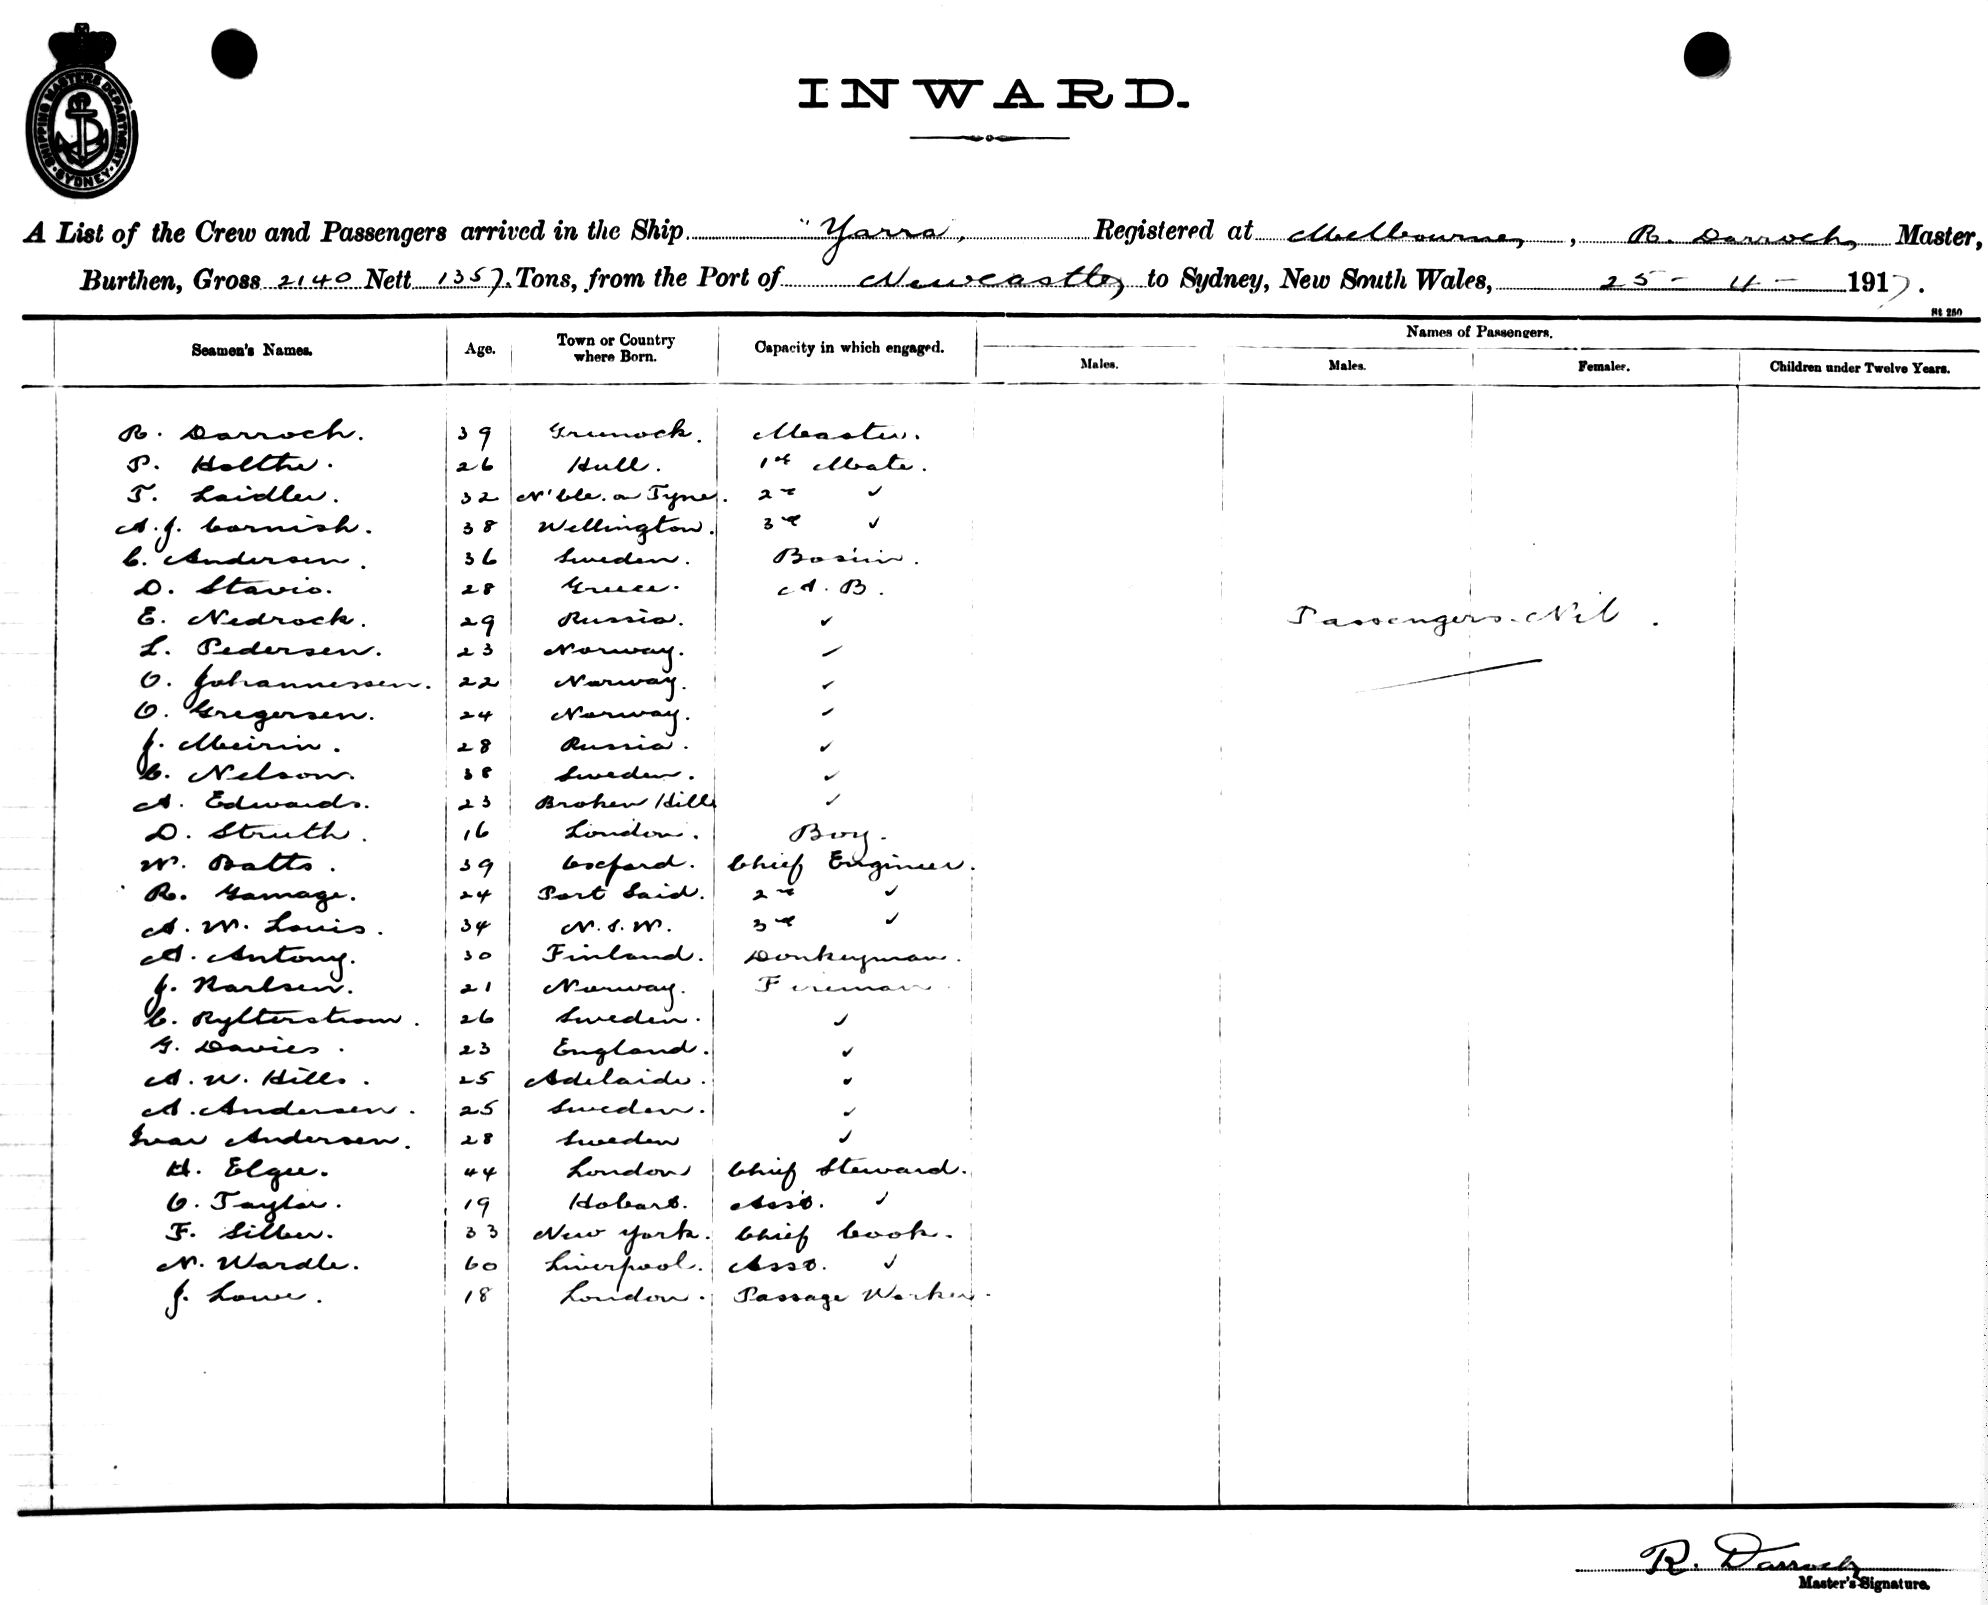 SHIPPING MASTERS DEPARTMENT SYDNEY
INWARD.
A List of the Crew and Passengers arrived in the Ship "Yarra", Registered at Melbourne, R. Darroch, Master,
Burthen, Gross 2140 Nett 1357. Tons, from the Port of Newcastle, to Sydney, New South Wales, 25 - 4 - 1917.
St 250
Names of Passengers.
Seamen's Names. Age. Town or Country where Born. Capacity in which engaged. Males. Males. Females. Children under Twelve Years.
R. Darroch. 39 Greenock. Master.
P. Holthe. 26 Hull. 1st Mate.
T. Laidler. 32 N'cle. on Tyne. 2nd ✓
A. J. Cornish. 38 Wellington. 3rd ✓
C. Andersen. 36 Sweden. Bos'un.
D. Stavio. 28 Greece. A. B.
E. Nedrock. 29 Russia. ✓ Passengers Nil.
L. Pedersen. 23 Norway. ✓
O. Johannessen. 22 Norway. ✓
O. Gregersen. 24 Norway. ✓
J. Meirin. 28 Russia. ✓
C. Nelson. 38 Sweden. ✓
A. Edwards. 23 Broken Hill ✓
D. Struth. 16 London. Boy.
W. Batts. 39 Oxford. Chief Engineer.
R. Gamage. 24 Port Said. 2nd ✓
A. W. Louis. 34 N.S.W. 3rd ✓
A. Antony. 30 Finland. Donkeyman.
J. Karlsen. 21 Norway. Fireman.
C. Rylterstrom. 26 Sweden. ✓
G. Davies. 23 England. ✓
A. W. Hills. 25 Adelaide. ✓
A. Andersen. 25 Sweden. ✓
Ivar Andersen. 28 Sweden ✓
H. Elgee. 44 London Chief Steward.
O. Taylor. 19 Hobart. Asst. ✓
F. Silber. 33 New York. Chief Cook.
N. Wardle. 60 Liverpool. Asst. ✓
J. Lowe. 18 London. Passage Worker.
R. Darroch
Master's Signature.